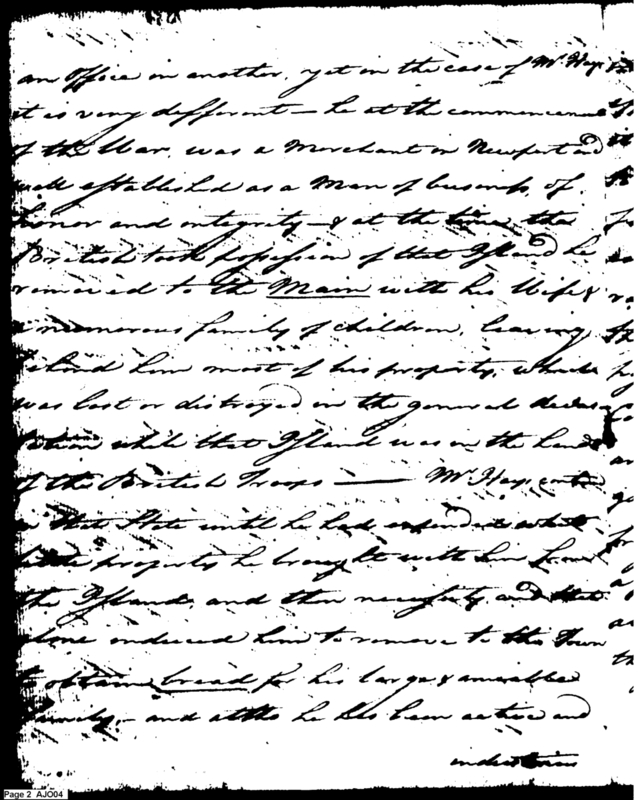 an Office in another, yet in the case of Mr Hays
it is very different — he at the commencement
of the War, was a Merchant in Newport and
well established as a Man of business, of
honor and integrity — & at the time the
British took possession of that Island he
removed to the Main with his Wife &
a numerous family of children, leaving
behind him most of his property, which
was lost or distroyed in the general devas
tation while that Island was in the hands
of the British Troops — Mr Hays
in that State until he had expended what
little property he brought with him from
the Island, and then necessity, and that
alone induced him to remove to this Town
to obtain bread for his large & amiable
family, — and altho he has been active and
industrious
Page 2 AJO04